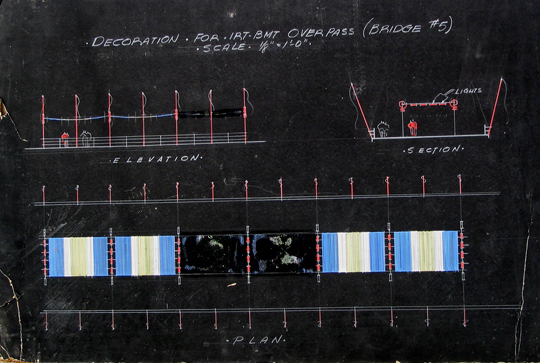 ·DECORATION · FOR · IRT-BMT OVERPASS (BRIDGE #5)
·SCALE· ⅛" = 1'-0"·
LIGHTS
·ELEVATION·
·SECTION·
·PLAN·